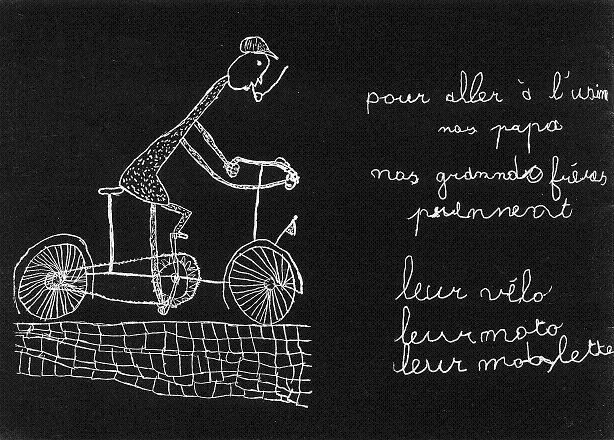 pour aller à l'usin
nos papa
nos grands frères
prennent
leur vélo
leur moto
leur mobylette